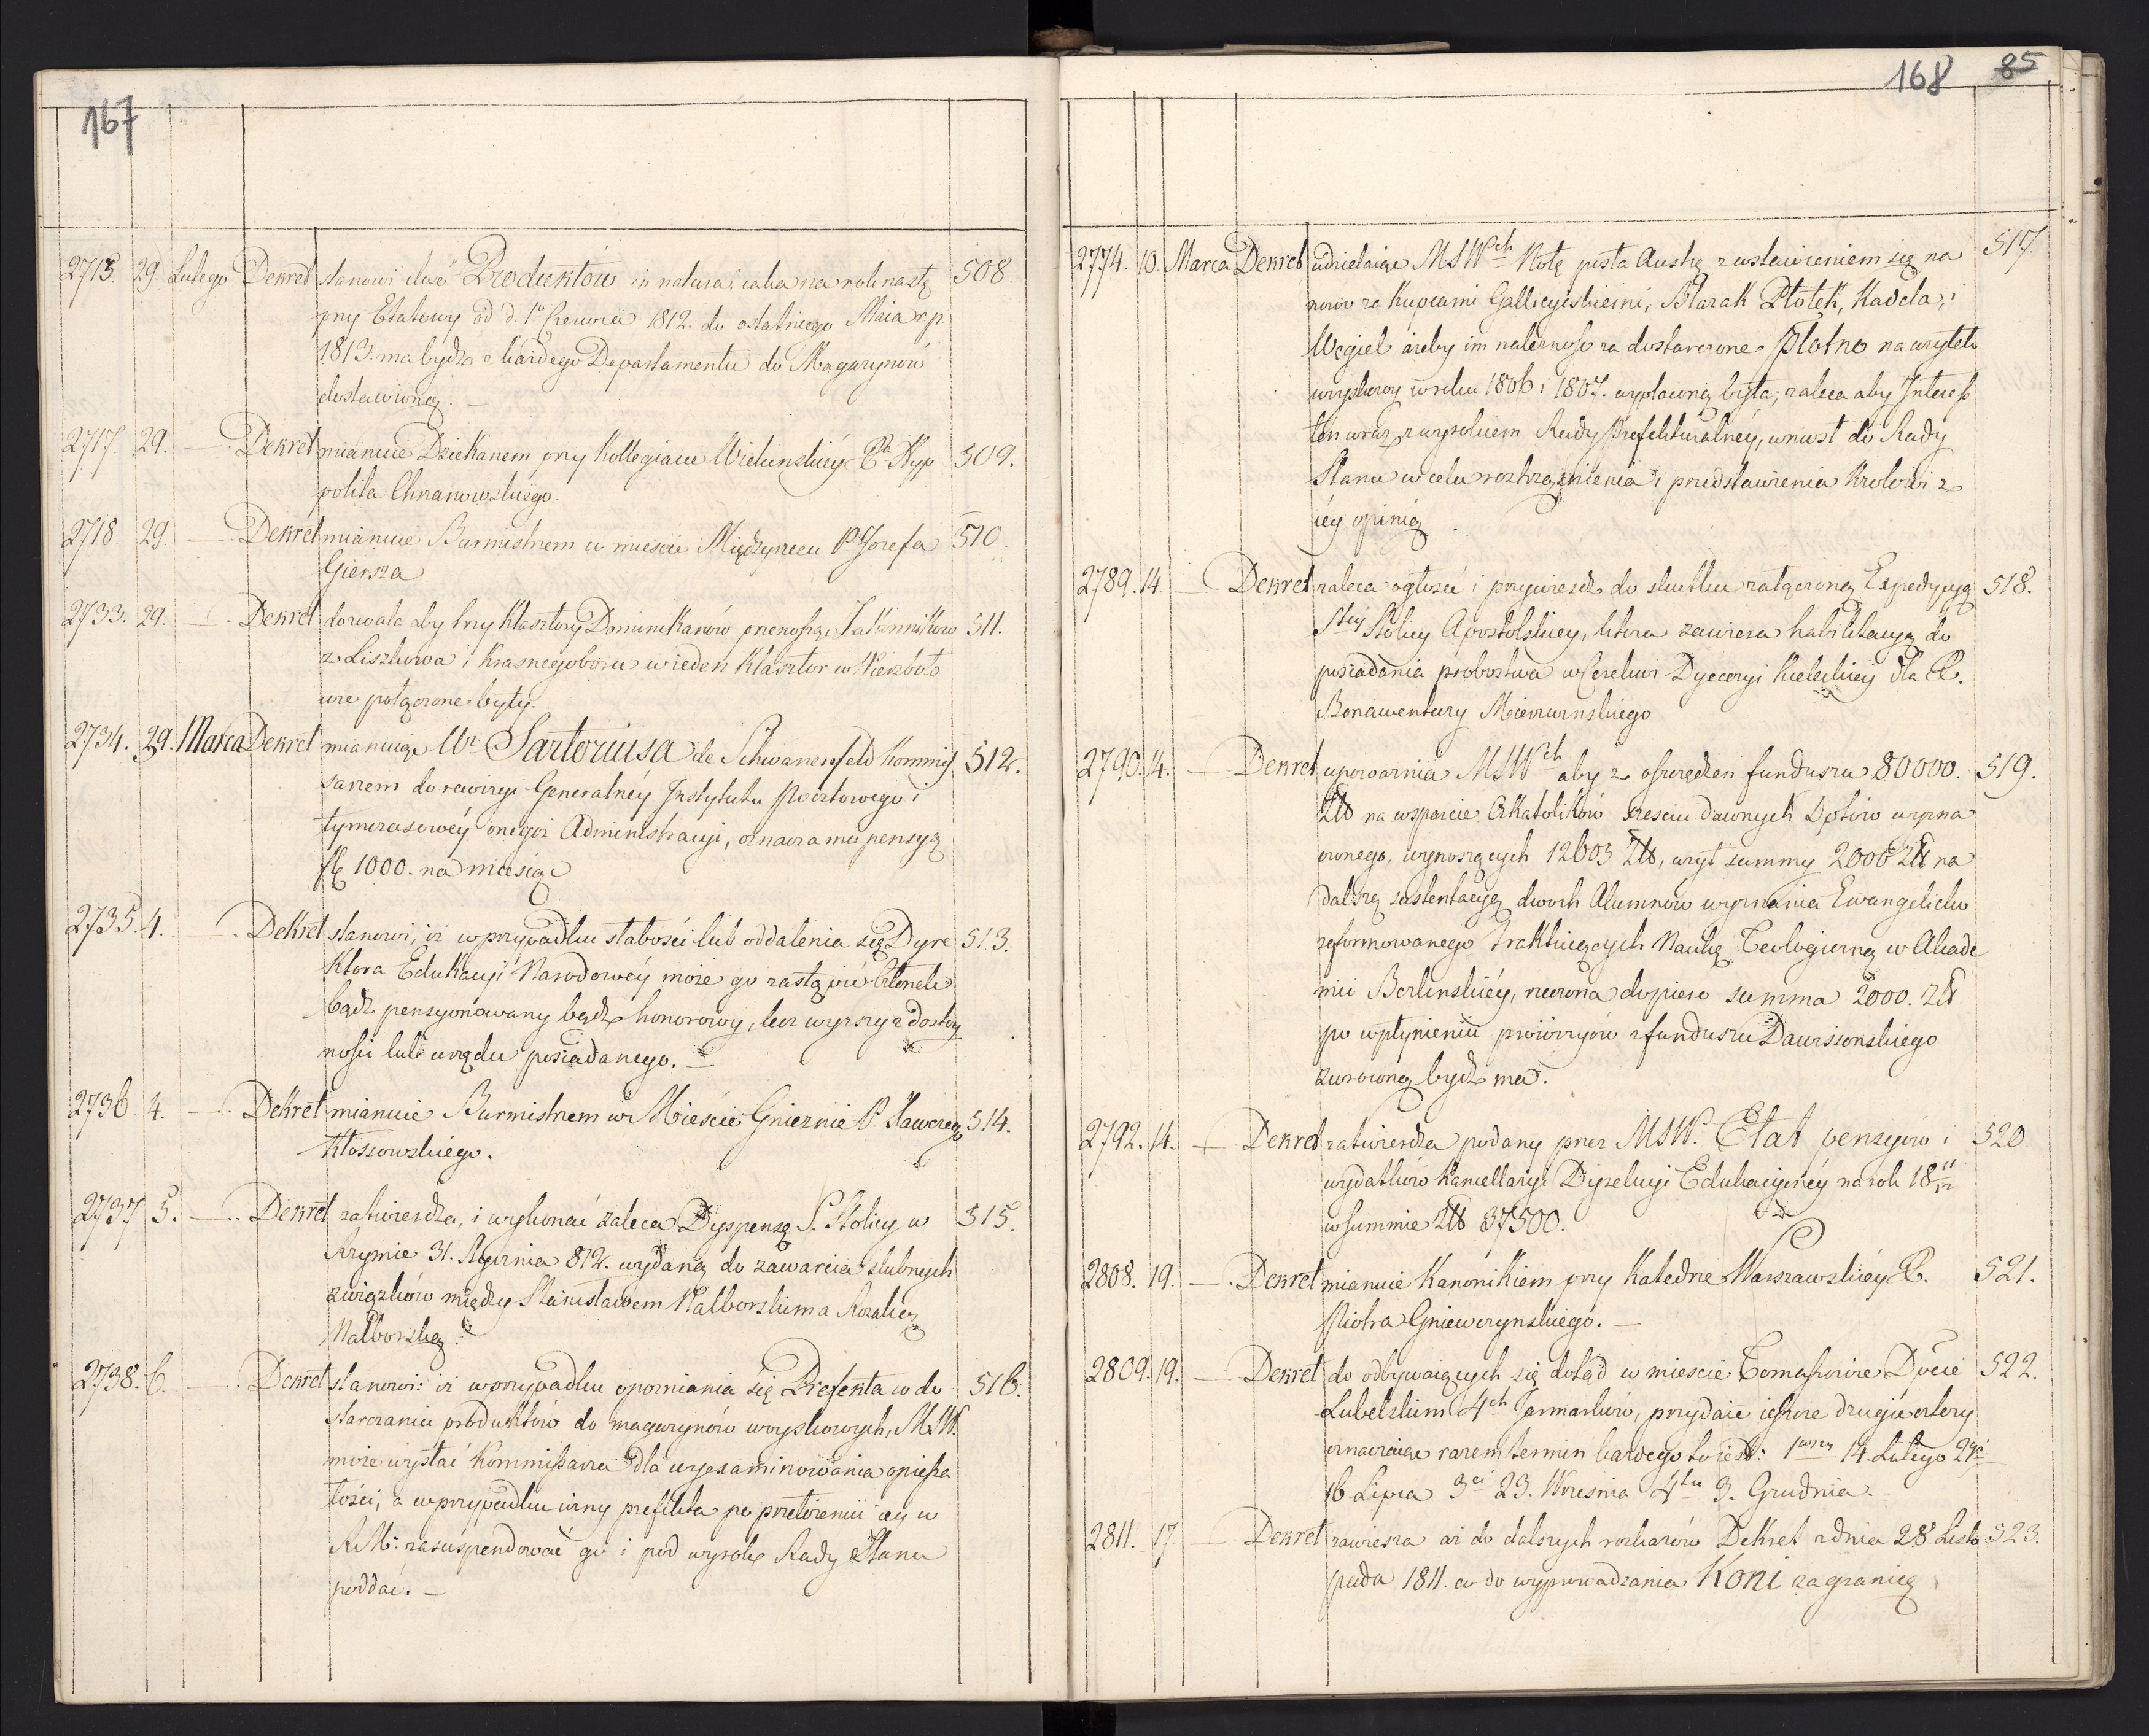 167
2713. 29. Lutego Dekret stanowi ilość Produktów in natura, iaka na rok nastę 508.
pny Etatowy od d. 1o Czerwca 1812. do ostatniego Maia r. p.
1813. ma bydź z każdego Departamentu do Magazynów
dostawioną. —
2717. 29. — Dekret mianuie Dziekanem przy Kollegiacie Wielunskiéy X. Hyp 509.
polita Chranowskiego.
2718 29. — Dekret mianuie Burmistrzem w mieście Międzyrzecu P. Jozefa 510.
Giersza
2733. 29. — Dekret dozwala aby trzy Klasztory Dominikanów przenosząc Zakonników 511.
z Liszkowa i Krasnegoboru w ieden Klasztor w Wierzbolo
wie połączone były.
2734. 29. Marca Dekret mianuiąc Ur Sartoriusa de Schwanenfeld Kommis 512.
sarzem do rewizyi Generalnéy Instytutu Pocztowego i
tymczasowéy onegoż Administracyi, oznacza mu pensyą
fl 1000. na miesiąc
2735. 4. — Dekret stanowi, iż w przypadku słabości lub oddalenia się Dyre 513.
ktora Edukacyi Narodowéy może go zastąpić Członek
bądź pensyonowany bądź honorowy, lecz wyższy z dostoy
ności lub urzędu posiadanego. —
2736 4. — Dekret mianuie Burmistrzem w Mieście Gnieznie P. Xawerego 514.
Kłossowskiego.
2737 5. — Dekret zatwierdza, i wykonać zaleca Dyspensę S. Stolicy w 515.
Rzymie 31. Stycznia 812. wydaną do zawarcia slubnych
związków między Stanisławem Nalborskim a Rozalią
Nalborską.
2738. 6. — Dekret stanowi: iż w przypadku opozniania się Prefekta w do 516.
starczaniu produktów do magazynów woyskowych, MSW.
może wysłać Kommissarza dla wyexaminowania opiesza
łości, a w przypadku winy prefekta po przełożeniu iey w
R. M: zasuspendować go i pod wyrok Rady Stanu
poddać. —
168 85
2774. 10. Marca Dekret udzielaiąc MSWch Notę posła Austr. z wstawieniem się na 517.
nowo za Kupcami Gallicyiskiemi, Blarak Płotek, Kadela, i
Węgiel ażeby im należność za dostarczone płótno na użytek
woyskowy w roku 1806 i 1807. wypłaconą była, zaleca aby Interess
ten wraz z wyrokiem Rady Prefekturalnéy, wniosł do Rady
Stanu w celu roztrząśnienia i przedstawienia Krolowi z
iéy opinią.
2789. 14. — Dekret zaleca ogłosić i przywiesdź do skutku załączoną Expedycyą 518.
Stéy Stolicy Apostolskiey, ktora zawiera habilitacyą do
posiadania probostwa w Cerekwi Dyecezyi Kieleckiéy dla X.
Bonawentury
2790. 14. — Dekret upoważnia MSWch aby z oszczędzeń funduszu 80000. 519.
Zł na wsparcie AKatolików sześciu dawnych Dptów wyzna
czonego, wynoszących 12603 Zł, użył summy 2000 Zł na
dalszą sustentacyą dwoch Alumnów wyznania Ewangelicko
reformowanego traktuiących Naukę Teologiczną w Akade
mii Berlinskiéy, rzeczona dopiero summa 2000. Zł
po wpłynieniu prowizyów z funduszu Dawissonskiego
zwroconą bydź ma.
2792. 14. — Dekret zatwierdza podany przez MSW. Etat pensyów i 520
wydatków Kancellaryi Dyrekcyi Edukacyinéy na rok 18 11/12
w summie Zł 37500.
2808. 19. — Dekret mianuie Kanonikiem przy Katedrze Warszawskiéy X. 521.
Piotra Gniewczynskiego. —
2809. 19. — Dekret do odbywaiących się dotąd w mieście Tomaszowie Dpcie 522.
Lubelskim 4ch Jarmarków, przydaie ieszcze drugie cztery
oznaczaiąc razem termin każdego to iest: 1wszy 14. Lutego 2gi
16 Lipca 3ci 23. Wrzesnia 4ty 3. Grudnia.
2811. 17 — Dekret zawiesza aż do dalszych rozkazów Dekret z dnia 28. Listo 523.
pada 1811. co do wyprowadzania Koni za granicę